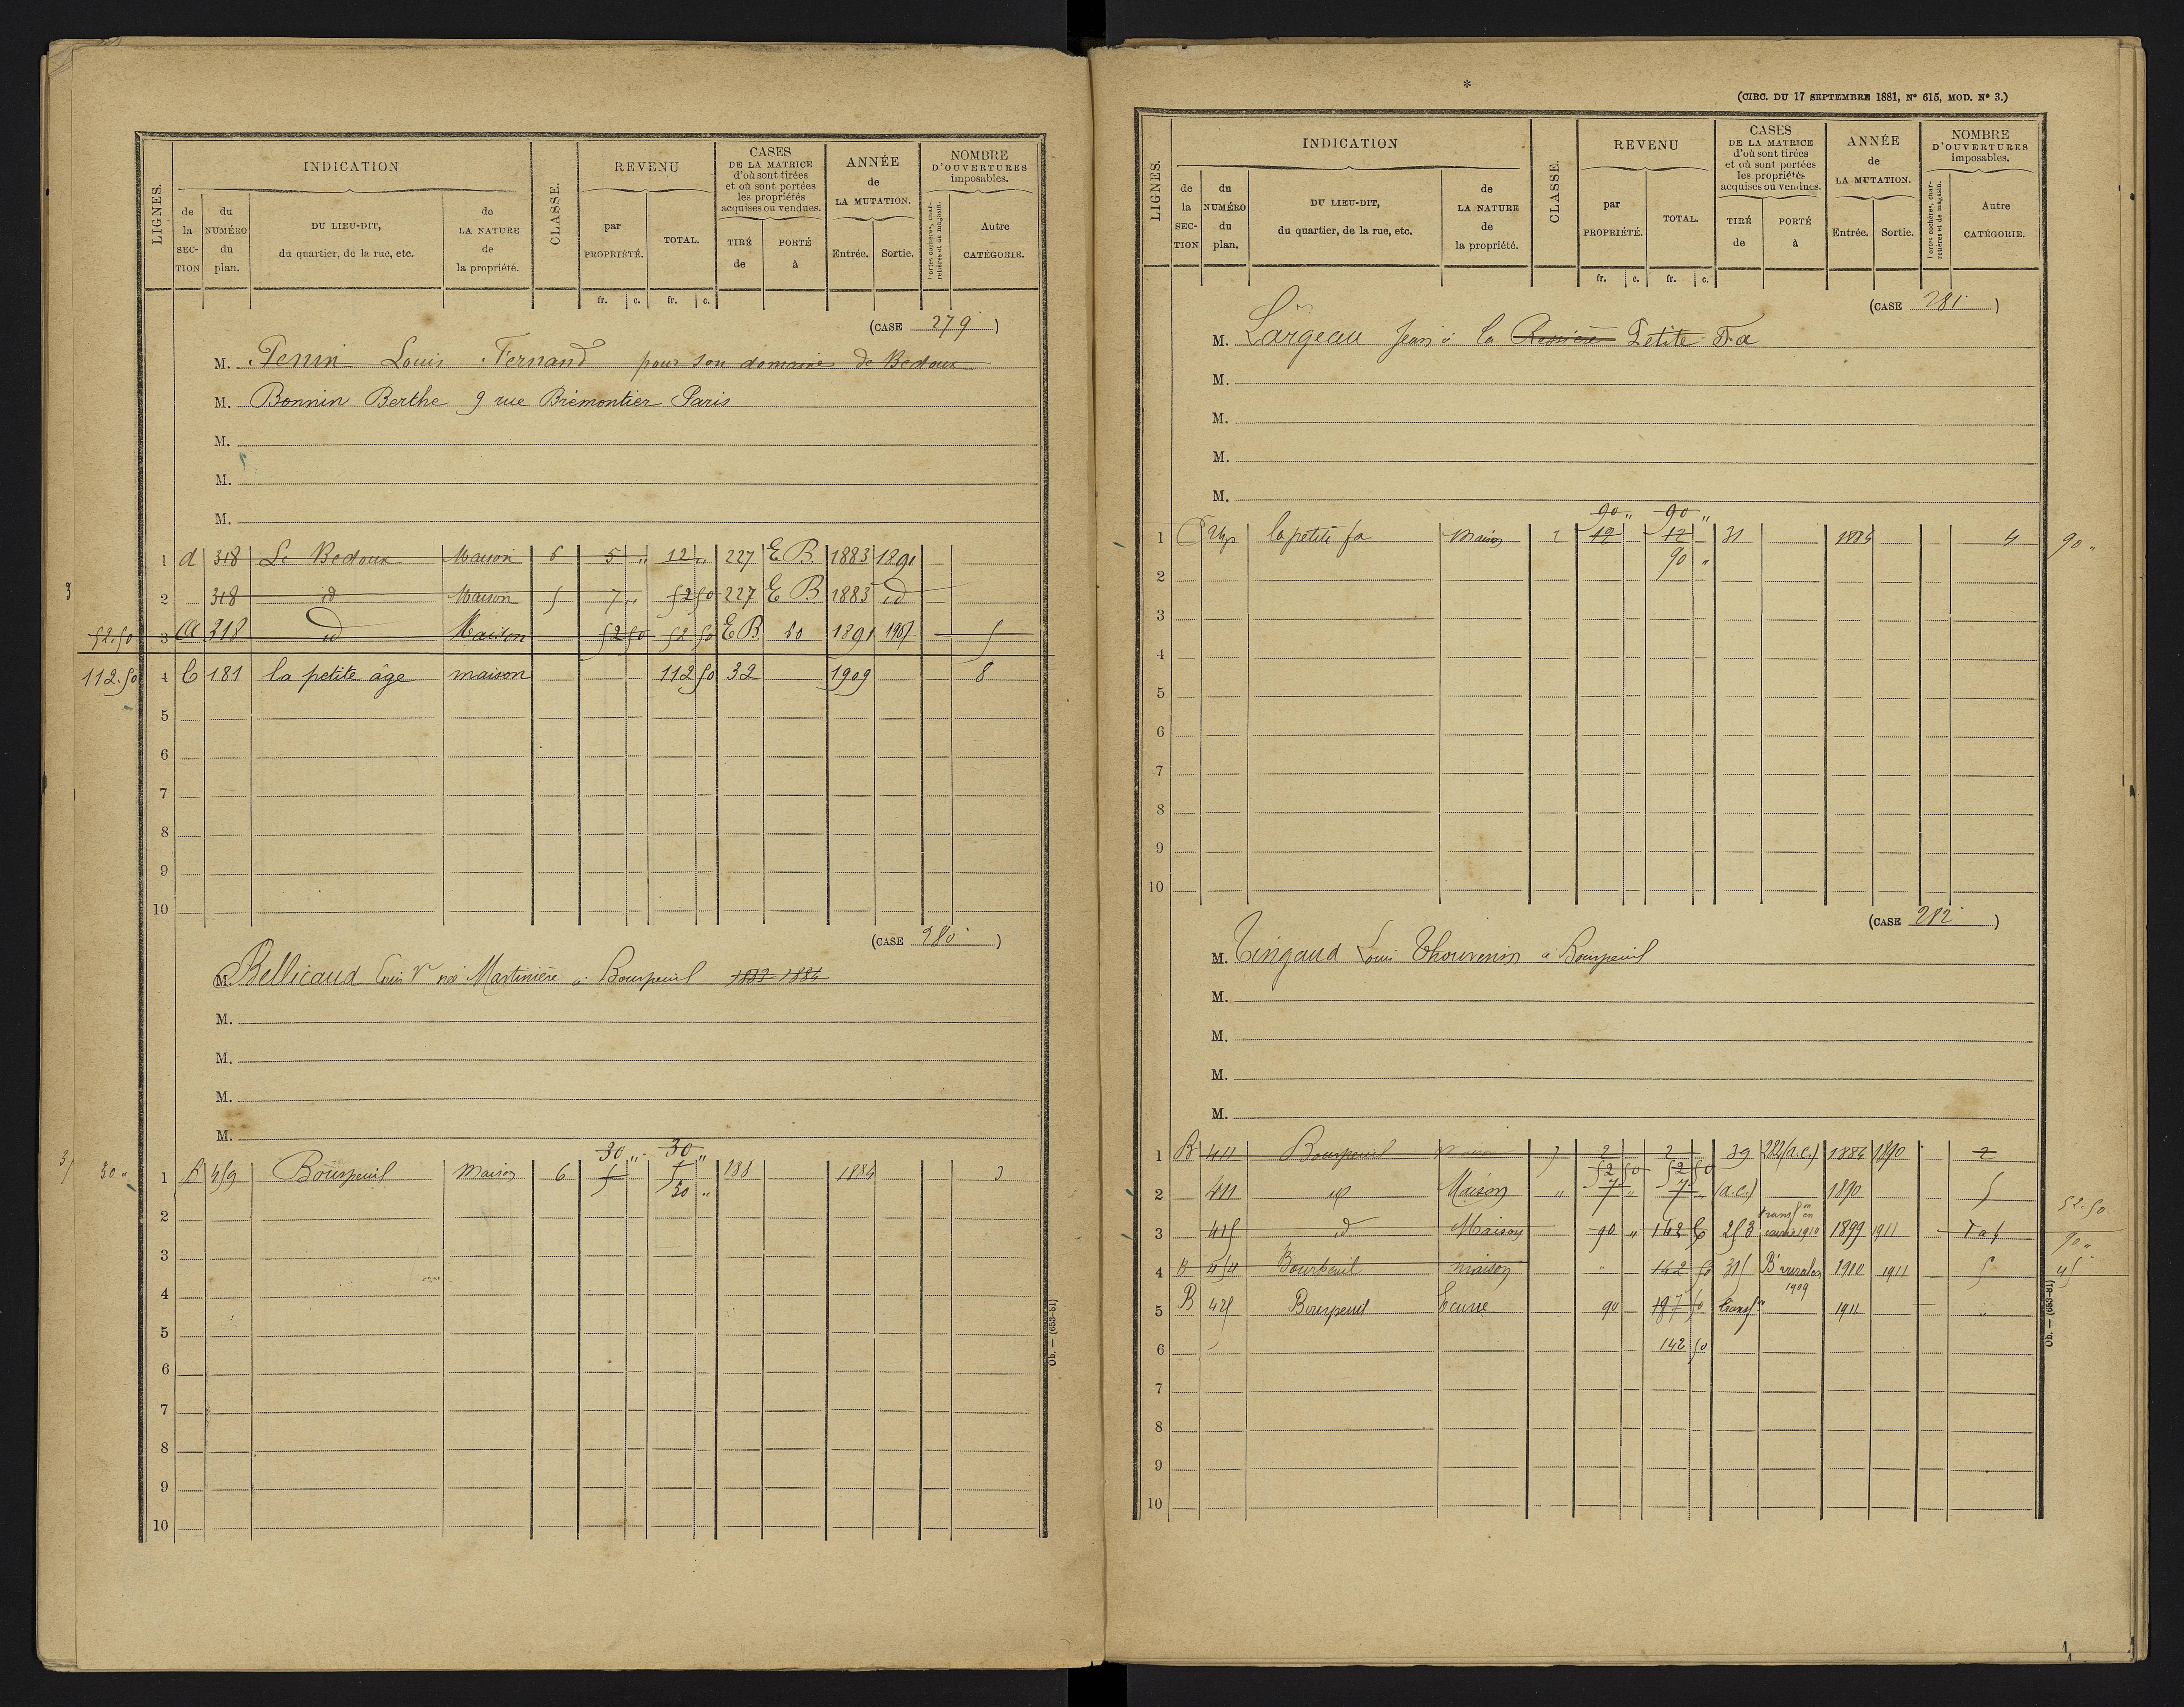 INDICATION
CLASSE.
REVENU
CASES
DE LA MATRICE
d'où sont tirées
et où sont portées
les propriétés
acquises ou vendues.
ANNÉE
de
LA MUTATION.
NOMBRE
D'OUVERTURES
imposables.
LIGNES.
de la SECTION
du NUMÉRO du plan.
DU LIEU-DIT,
du quartier, de la rue, etc.
de LA NATURE de la propriété.
par PROPRIÉTÉ.
TOTAL.
TIRÉ de
PORTÉ à
Entrée.
Sortie.
Portes cochères, charretières et de magasin.
Autre CATÉGORIE.
fr. c. fr. c.
(CASE 279)
M. Penin Louis Fernand pour son domaine de Bedoux
M. Bonnin Berthe 9 rue Brémontier Paris
M.
M.
M.
1 A 318 Le Bedoux Maison 6 5 „ 12 „ 227 E B. 1883 1891
3
2 318 id Maison 5 7 „ 52 50 227 E B 1883 id
52.50 3 A 318 id Maison 52 50 52 50 E B 1891 1907 5
112.50 4 C 181 la petite âge maison 112 50 32 1909 8
5
6
7
8
9
10
(CASE 280)
M. Bellicaud Louis Vve née Martinière à Bourpeuil 1883 1884
M.
M.
M.
M.
30 „ 30 „
30 „ 1 B 459 Bourpeuil Maison 6 5 5 188 1884 3
30 „
2
3
4
5
6
7
8
9
10
Ob. — (653-81)
*
(CIRC. DU 17 SEPTEMBRE 1881, Nº 615, MOD. Nº 3.)
INDICATION
CLASSE.
REVENU
CASES
DE LA MATRICE
d'où sont tirées
et où sont portées
les propriétés
acquises ou vendues.
ANNÉE
de
LA MUTATION.
NOMBRE
D'OUVERTURES
imposables.
LIGNES.
de la SECTION
du NUMÉRO du plan.
DU LIEU-DIT,
du quartier, de la rue, etc.
de LA NATURE de la propriété.
par PROPRIÉTÉ.
TOTAL.
TIRÉ de
PORTÉ à
Entrée.
Sortie.
Portes cochères, charretières et de magasin.
Autre CATÉGORIE.
fr. c. fr. c.
(CASE 281)
M. Largeau Jean à la Petite Fa
M.
M.
M.
M.
90 „ 90 „
1 C la petite fa Maison 2 12 12 31 1884 4 90 „
2 90 „
3
4
5
6
7
8
9
10
(CASE 282)
M. Tingaud Louis Thouvenin à Bourpeuil
M.
M.
M.
M.
1 B 411 Bourpeuil 7 2 2 39 282 (a.c.) 1884 1890 2
52 50 52 50
2 411 id Maison „ 7 „ 7 „ (a.c.) 1890 5 52.50
transfon en
3 415 id Maison 90 „ 142 50 253 écurie 1910 1899 1911 90 „
4 B 454 Bourpeuil maison „ 142 50 315 Bt rurales 1909 1910 1911 5 45
5 B 425 Bourpeuil Ecurie 90 187 50 transfon 1911 „
6 142 50
7
8
9
10
Ob. — (653-81)